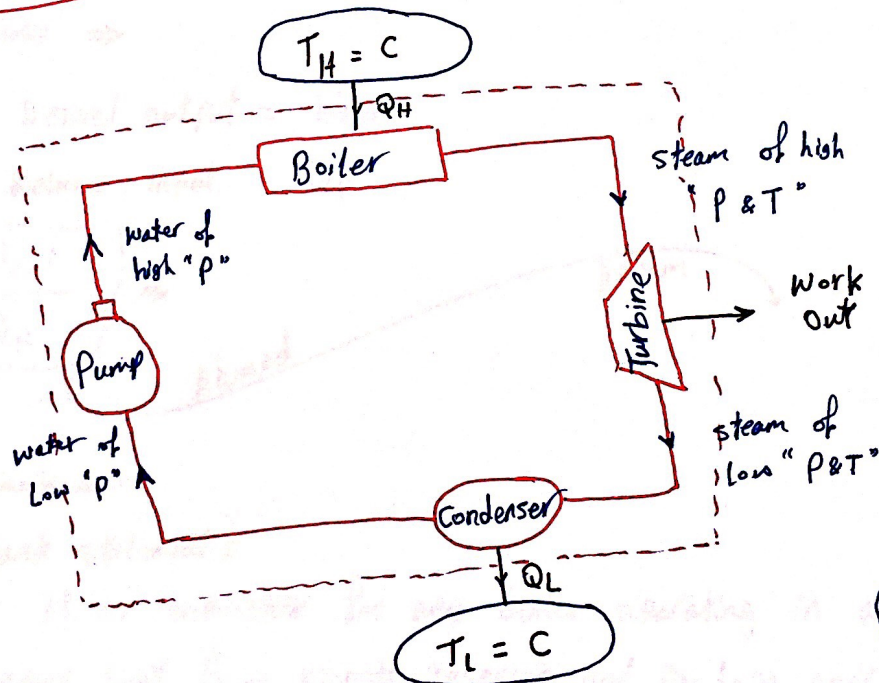 T_H = C
Q_H
Boiler
steam of high
"P & T"
water of
high "P"
Turbine
Work
Out
Pump
water of
Low "P"
steam of
low "P&T"
Condenser
Q_L
T_L = C